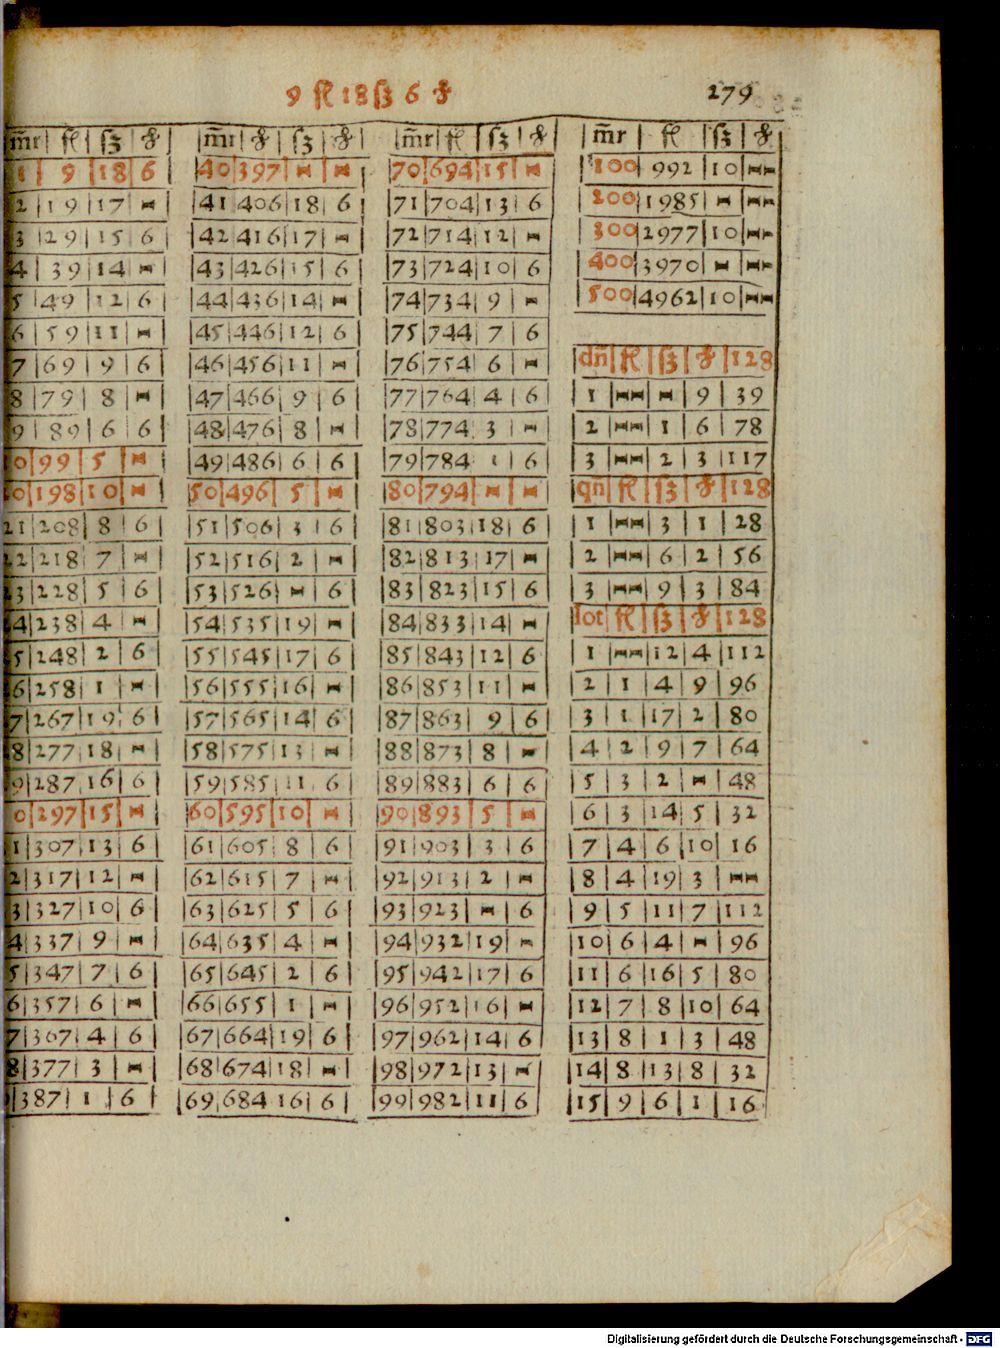 9 fl 18 ſz 6 ₰
279
m̄r | fl | ſz | ₰
1 | 9 | 18 | 6
2 | 19 | 17 | ⑅
3 | 29 | 15 | 6
4 | 39 | 14 | ⑅
5 | 49 | 12 | 6
6 | 59 | 11 | ⑅
7 | 69 | 9 | 6
8 | 79 | 8 | ⑅
9 | 89 | 6 | 6
0 | 99 | 5 | ⑅
0 | 198 | 10 | ⑅
21 | 208 | 8 | 6
22 | 218 | 7 | ⑅
23 | 228 | 5 | 6
24 | 238 | 4 | ⑅
25 | 248 | 2 | 6
26 | 258 | 1 | ⑅
7 | 267 | 19 | 6
8 | 277 | 18 | ⑅
9 | 287 | 16 | 6
0 | 297 | 15 | ⑅
1 | 307 | 13 | 6
2 | 317 | 12 | ⑅
3 | 327 | 10 | 6
4 | 337 | 9 | ⑅
5 | 347 | 7 | 6
6 | 357 | 6 | ⑅
7 | 367 | 4 | 6
8 | 377 | 3 | ⑅
387 | 1 | 6
m̄r | ₰ | ſz | ₰
40 | 397 | ⑅ | ⑅
41 | 406 | 18 | 6
42 | 416 | 17 | ⑅
43 | 426 | 15 | 6
44 | 436 | 14 | ⑅
45 | 446 | 12 | 6
46 | 456 | 11 | ⑅
47 | 466 | 9 | 6
48 | 476 | 8 | ⑅
49 | 486 | 6 | 6
50 | 496 | 5 | ⑅
51 | 506 | 3 | 6
52 | 516 | 2 | ⑅
53 | 526 | ⑅ | 6
54 | 535 | 19 | ⑅
55 | 545 | 17 | 6
56 | 555 | 16 | ⑅
57 | 565 | 14 | 6
58 | 575 | 13 | ⑅
59 | 585 | 11 | 6
60 | 595 | 10 | ⑅
61 | 605 | 8 | 6
62 | 615 | 7 | ⑅
63 | 625 | 5 | 6
64 | 635 | 4 | ⑅
65 | 645 | 2 | 6
66 | 655 | 1 | ⑅
67 | 664 | 19 | 6
68 | 674 | 18 | ⑅
69 | 684 | 16 | 6
m̄r | fl | ſz | ₰
70 | 694 | 15 | ⑅
71 | 704 | 13 | 6
72 | 714 | 12 | ⑅
73 | 724 | 10 | 6
74 | 734 | 9 | ⑅
75 | 744 | 7 | 6
76 | 754 | 6 | ⑅
77 | 764 | 4 | 6
78 | 774 | 3 | ⑅
79 | 784 | 1 | 6
80 | 794 | ⑅ | ⑅
81 | 803 | 18 | 6
82 | 813 | 17 | ⑅
83 | 823 | 15 | 6
84 | 833 | 14 | ⑅
85 | 843 | 12 | 6
86 | 853 | 11 | ⑅
87 | 863 | 9 | 6
88 | 873 | 8 | ⑅
89 | 883 | 6 | 6
90 | 893 | 5 | ⑅
91 | 903 | 3 | 6
92 | 913 | 2 | ⑅
93 | 923 | ⑅ | 6
94 | 932 | 19 | ⑅
95 | 942 | 17 | 6
96 | 952 | 16 | ⑅
97 | 962 | 14 | 6
98 | 972 | 13 | ⑅
99 | 982 | 11 | 6
m̄r | fl | ſz | ₰
100 | 992 | 10 | ⑅
200 | 1985 | ⑅ | ⑅
300 | 2977 | 10 | ⑅
400 | 3970 | ⑅ | ⑅
500 | 4962 | 10 | ⑅
dn̄ | fl | ſz | ₰ | 128
1 | ⑅ | ⑅ | 9 | 39
2 | ⑅ | 1 | 6 | 78
3 | ⑅ | 2 | 3 | 117
qn̄ | fl | ſz | ₰ | 128
1 | ⑅ | 3 | 1 | 28
2 | ⑅ | 6 | 2 | 56
3 | ⑅ | 9 | 3 | 84
lot | fl | ſz | ₰ | 128
1 | ⑅ | 12 | 4 | 112
2 | 1 | 4 | 9 | 96
3 | 1 | 17 | 2 | 80
4 | 2 | 9 | 7 | 64
5 | 3 | 2 | ⑅ | 48
6 | 3 | 14 | 5 | 32
7 | 4 | 6 | 10 | 16
8 | 4 | 19 | 3 | ⑅
9 | 5 | 11 | 7 | 112
10 | 6 | 4 | ⑅ | 96
11 | 6 | 16 | 5 | 80
12 | 7 | 8 | 10 | 64
13 | 8 | 1 | 3 | 48
14 | 8 | 13 | 8 | 32
15 | 9 | 6 | 1 | 16
Digitalisierung gefördert durch die Deutsche Forschungsgemeinschaft - DFG